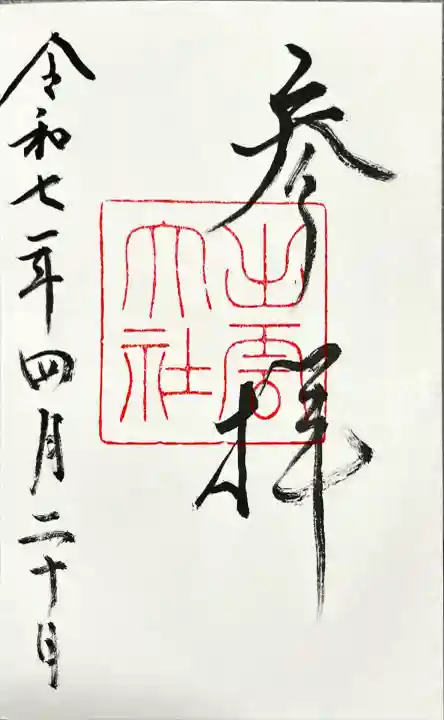 参拝
出雲
大社
令和七年四月二十日